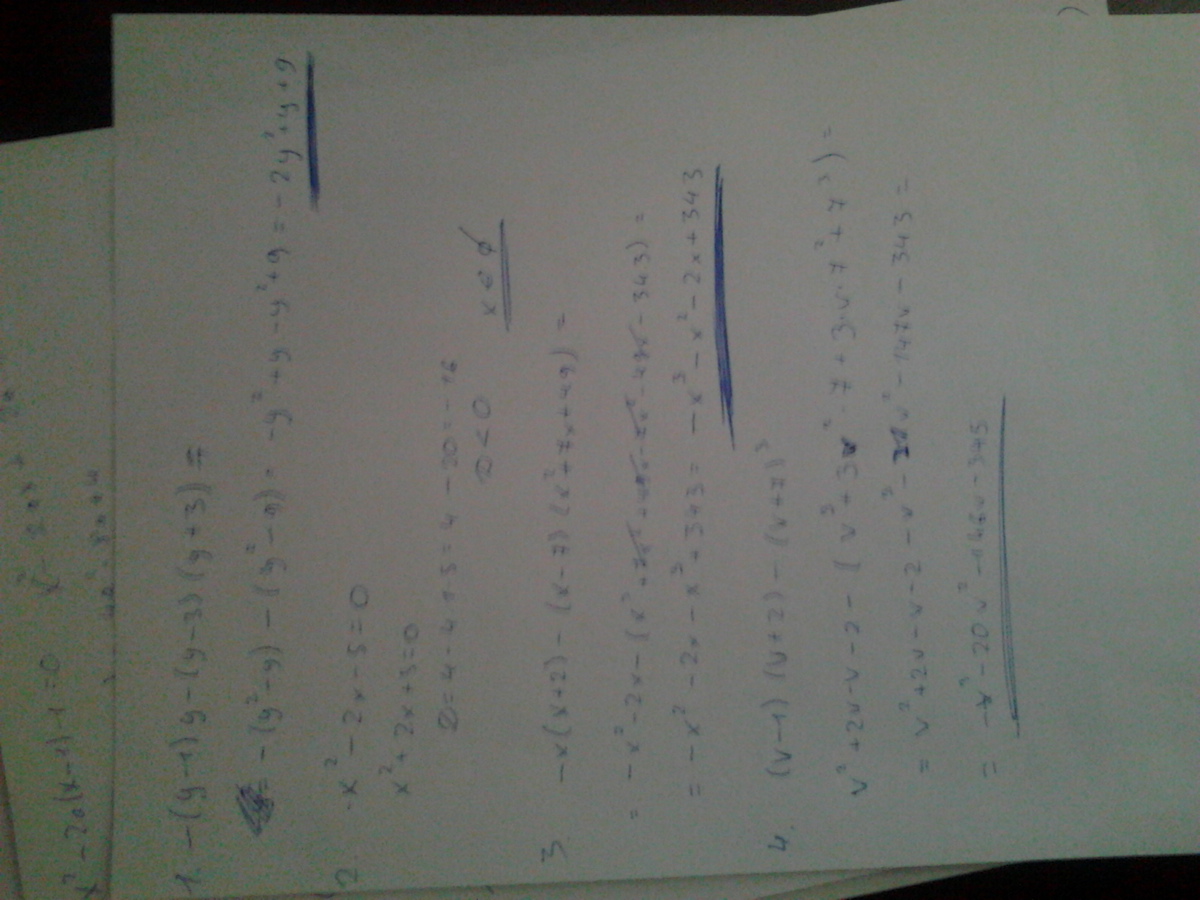 x² - 2a(x-1)-1=0
1. -(y-1)y-(y-3)(y+3) =
= -(y²-y) - (y²-9) = -y²+y-y²+9 = -2y²+y+9
2. -x²-2x-5=0
x²+2x+5=0
D=4-4·1·5=4-20=-16
D<0
x∈∅
3. -x(x+2) - (x-7)(x²+7x+49) =
= -x²-2x-(x³+7x²+49x-7x²-49x-343) =
= -x²-2x-x³+343 = -x³-x²-2x+343
4. (v-1)(v+2) - (v+7)³
v²+2v-v-2-(v³+3v²·7+3·v·7²+7³) =
= v²+2v-v-2-v³-21v²-147v-343 =
= -v³-20v²-146v-345